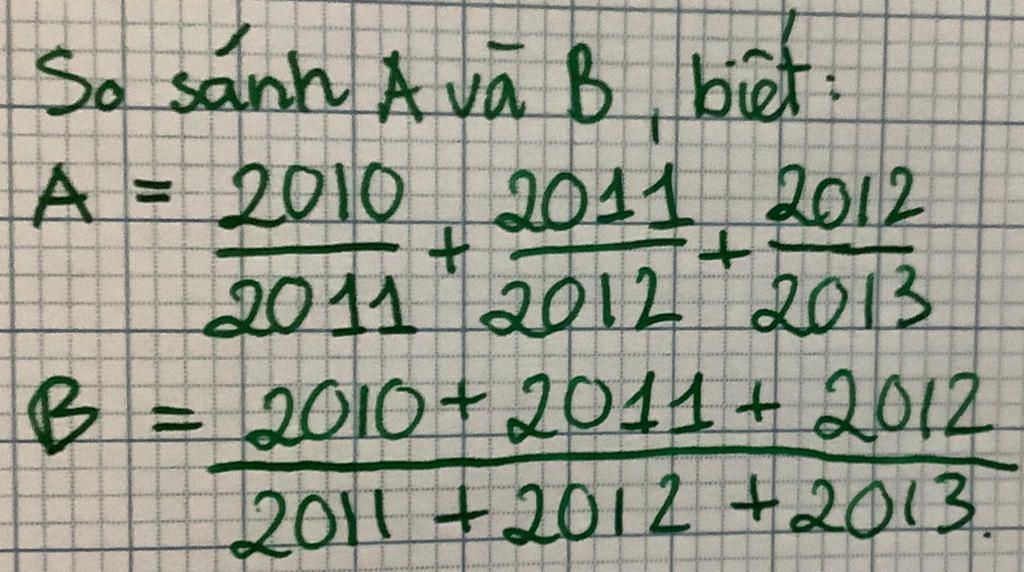 So sánh A và B, biết:
A = 2010/2011 + 2011/2012 + 2012/2013
B = (2010 + 2011 + 2012)/(2011 + 2012 + 2013).